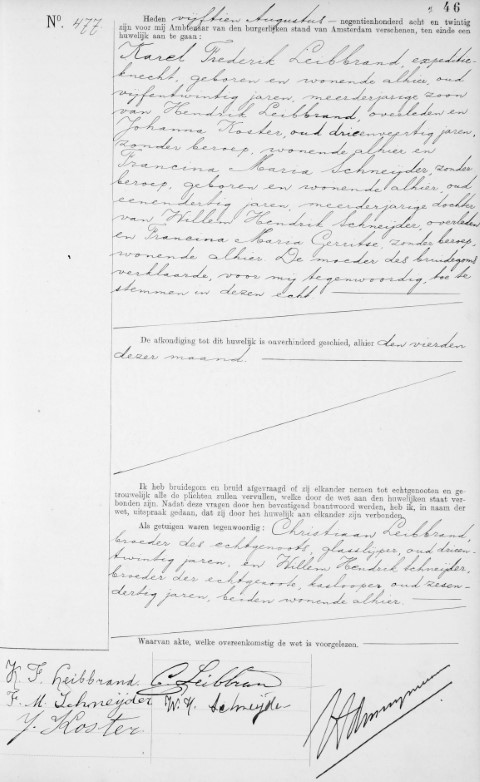 46
No. 477
Heden vijftien Augustus negentienhonderd acht en twintig
zijn voor mij Ambtenaar van den burgerlijken stand van Amsterdam verschenen, ten einde een
huwelijk aan te gaan:
Karel Frederik Leibbrand, expeditie-
knecht, geboren en wonende alhier, oud
vijfentwintig jaren, meerderjarige zoon
van Hendrik Leibbrand, overleden en
Johanna Koster, oud drieenveertig jaren,
zonder beroep, wonende alhier en
Francina Maria Schneijder, zonder
beroep, geboren en wonende alhier, oud
eenendertig jaren, meerderjarige dochter
van Willem Hendrik Schneijder, overleden
en Francina Maria Gerritse, zonder beroep,
wonende alhier. De moeder des bruidegoms
verklaarde, voor mij tegenwoordig, toe te
stemmen in dezen echt.
De afkondiging tot dit huwelijk is onverhinderd geschied, alhier den vierden
dezer maand.
Ik heb bruidegom en bruid afgevraagd of zij elkander nemen tot echtgenooten en ge-
trouwelijk alle de plichten zullen vervullen, welke door de wet aan den huwelijken staat ver-
bonden zijn. Nadat deze vragen door hen bevestigend beantwoord werden, heb ik, in naam der
wet, uitspraak gedaan, dat zij door het huwelijk aan elkander zijn verbonden.
Als getuigen waren tegenwoordig: Christiaan Leibbrand,
broeder des echtgenoots, glasslijper, oud drieen-
twintig jaren, en Willem Hendrik Schneijder,
broeder der echtgenoote, kaslooper, oud zesen-
dertig jaren, beiden wonende alhier.
Waarvan akte, welke overeenkomstig de wet is voorgelezen.
K. F. Leibbrand C. Leibbran
F. M. Schneijder W. H. Schneijde
J. Koster